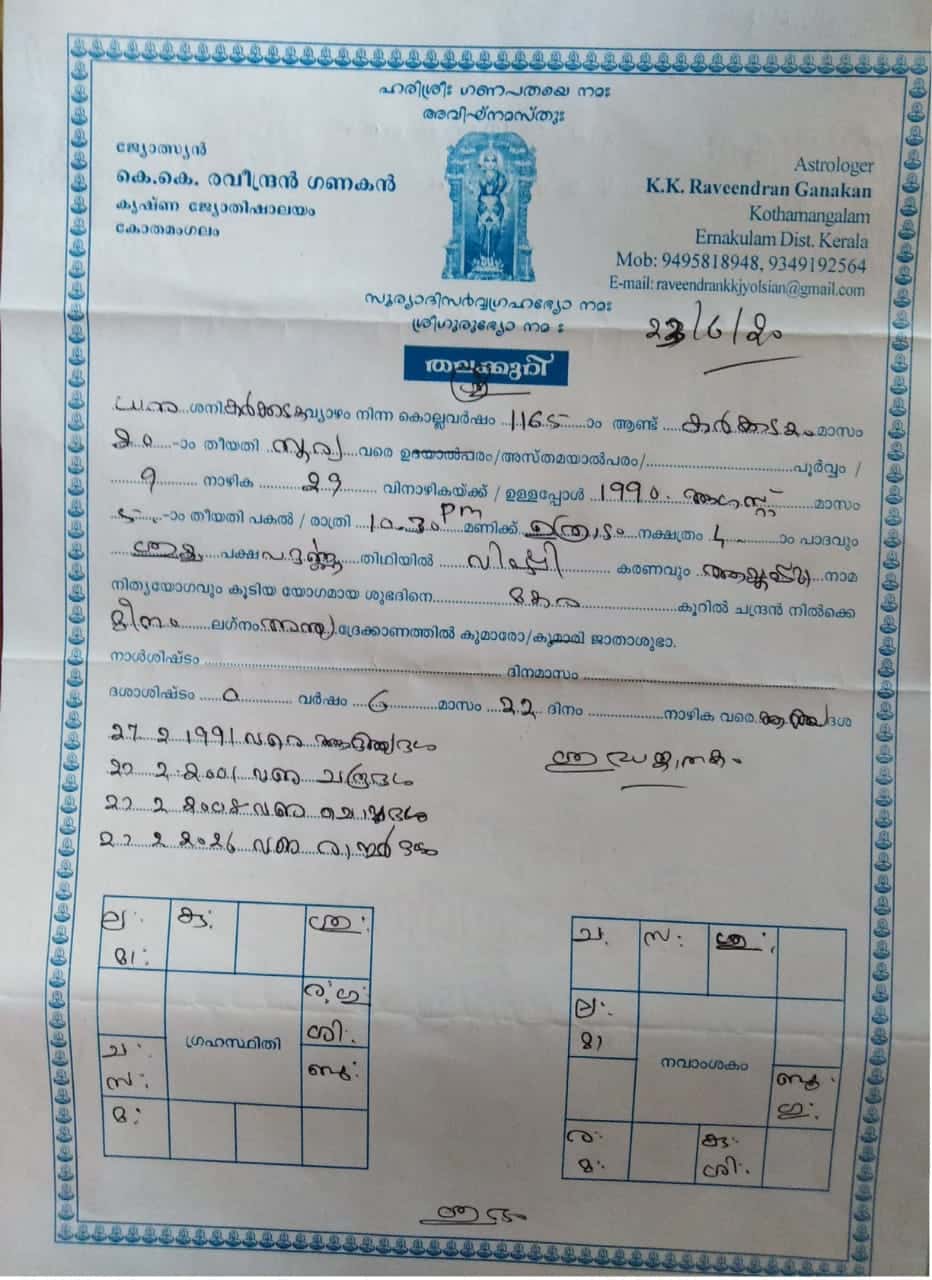 ഹരിശ്രീഃ ഗണപതയെ നമഃ
അവിഘ്നമസ്തുഃ
ജ്യോത്സ്യൻ
കെ.കെ. രവീന്ദ്രൻ ഗണകൻ
കൃഷ്ണ ജ്യോതിഷാലയം
കോതമംഗലം
Astrologer
K.K. Raveendran Ganakan
Kothamangalam
Ernakulam Dist. Kerala
Mob: 9495818948, 9349192564
E-mail: raveendrankkjyolsian@gmail.com
സൂര്യാദിസർവ്വഗ്രഹഭ്യോ നമഃ
ശ്രീഗുരുഭ്യോ നമ ഃ
തലക്കുറി
ധനു ശനി കർക്കടക വ്യാഴം നിന്ന കൊല്ലവർഷം 1165 ാം ആണ്ട് കർക്കടകം മാസം
20 -ാം തീയതി സൂര്യ വരെ ഉദയാൽപരം/അസ്തമയാൽപരം/ പൂർവ്വം /
9 നാഴിക 29 വിനാഴികയ്ക്ക് / ഉള്ളപ്പോൾ 1990 ആഗസ്റ്റ് മാസം
5 -ാം തീയതി പകൽ / രാത്രി 10.30 pm മണിക്ക് ഉത്രാടം നക്ഷത്രം 4 ാം പാദവും
പക്ഷ തിഥിയിൽ വിഷ്ടി കരണവും ആയുഷ്മാ നാമ
നിത്യയോഗവും കൂടിയ യോഗമായ ശുഭദിനെ മകര കൂറിൽ ചന്ദ്രൻ നിൽക്കെ
മീനം ലഗ്നം അന്ത്യ ദ്രേക്കാണത്തിൽ കുമാരോ/കുമാരി ജാതാശുഭാ.
നാൾശിഷ്ടം ദിനമാസം
ദശാശിഷ്ടം 0 വർഷം 6 മാസം 22 ദിനം നാഴിക വരെ ആദിത്യ ദശ
27 2 1991 വരെ ആദിത്യദശ
27 2 2001 വരെ ചന്ദ്രദശ
27 2 2008 വരെ ചൊവ്വദശ
27 2 2026 വരെ രാഹുർദശ
ല: കു:
മാ:
ര, ഗു:
ശി:
ച:
സ:
ഗ്രഹസ്ഥിതി
ബു:
മ:
ച. സ:
ല:
മാ
നവാംശകം
ബു:
ഗു:
ര:
മ:
കു:
ശി: